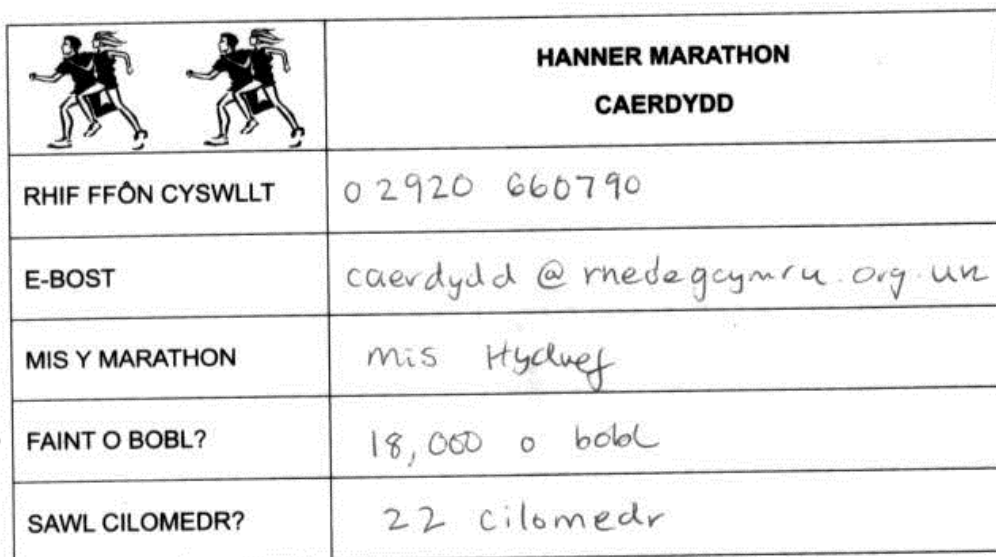 HANNER MARATHON
CAERDYDD
RHIF FFÔN CYSWLLT 02920 660790
E-BOST caerdydd@rhedegcymru.org.uk
MIS Y MARATHON mis Hydref
FAINT O BOBL? 18,000 o bobl
SAWL CILOMEDR? 22 cilomedr